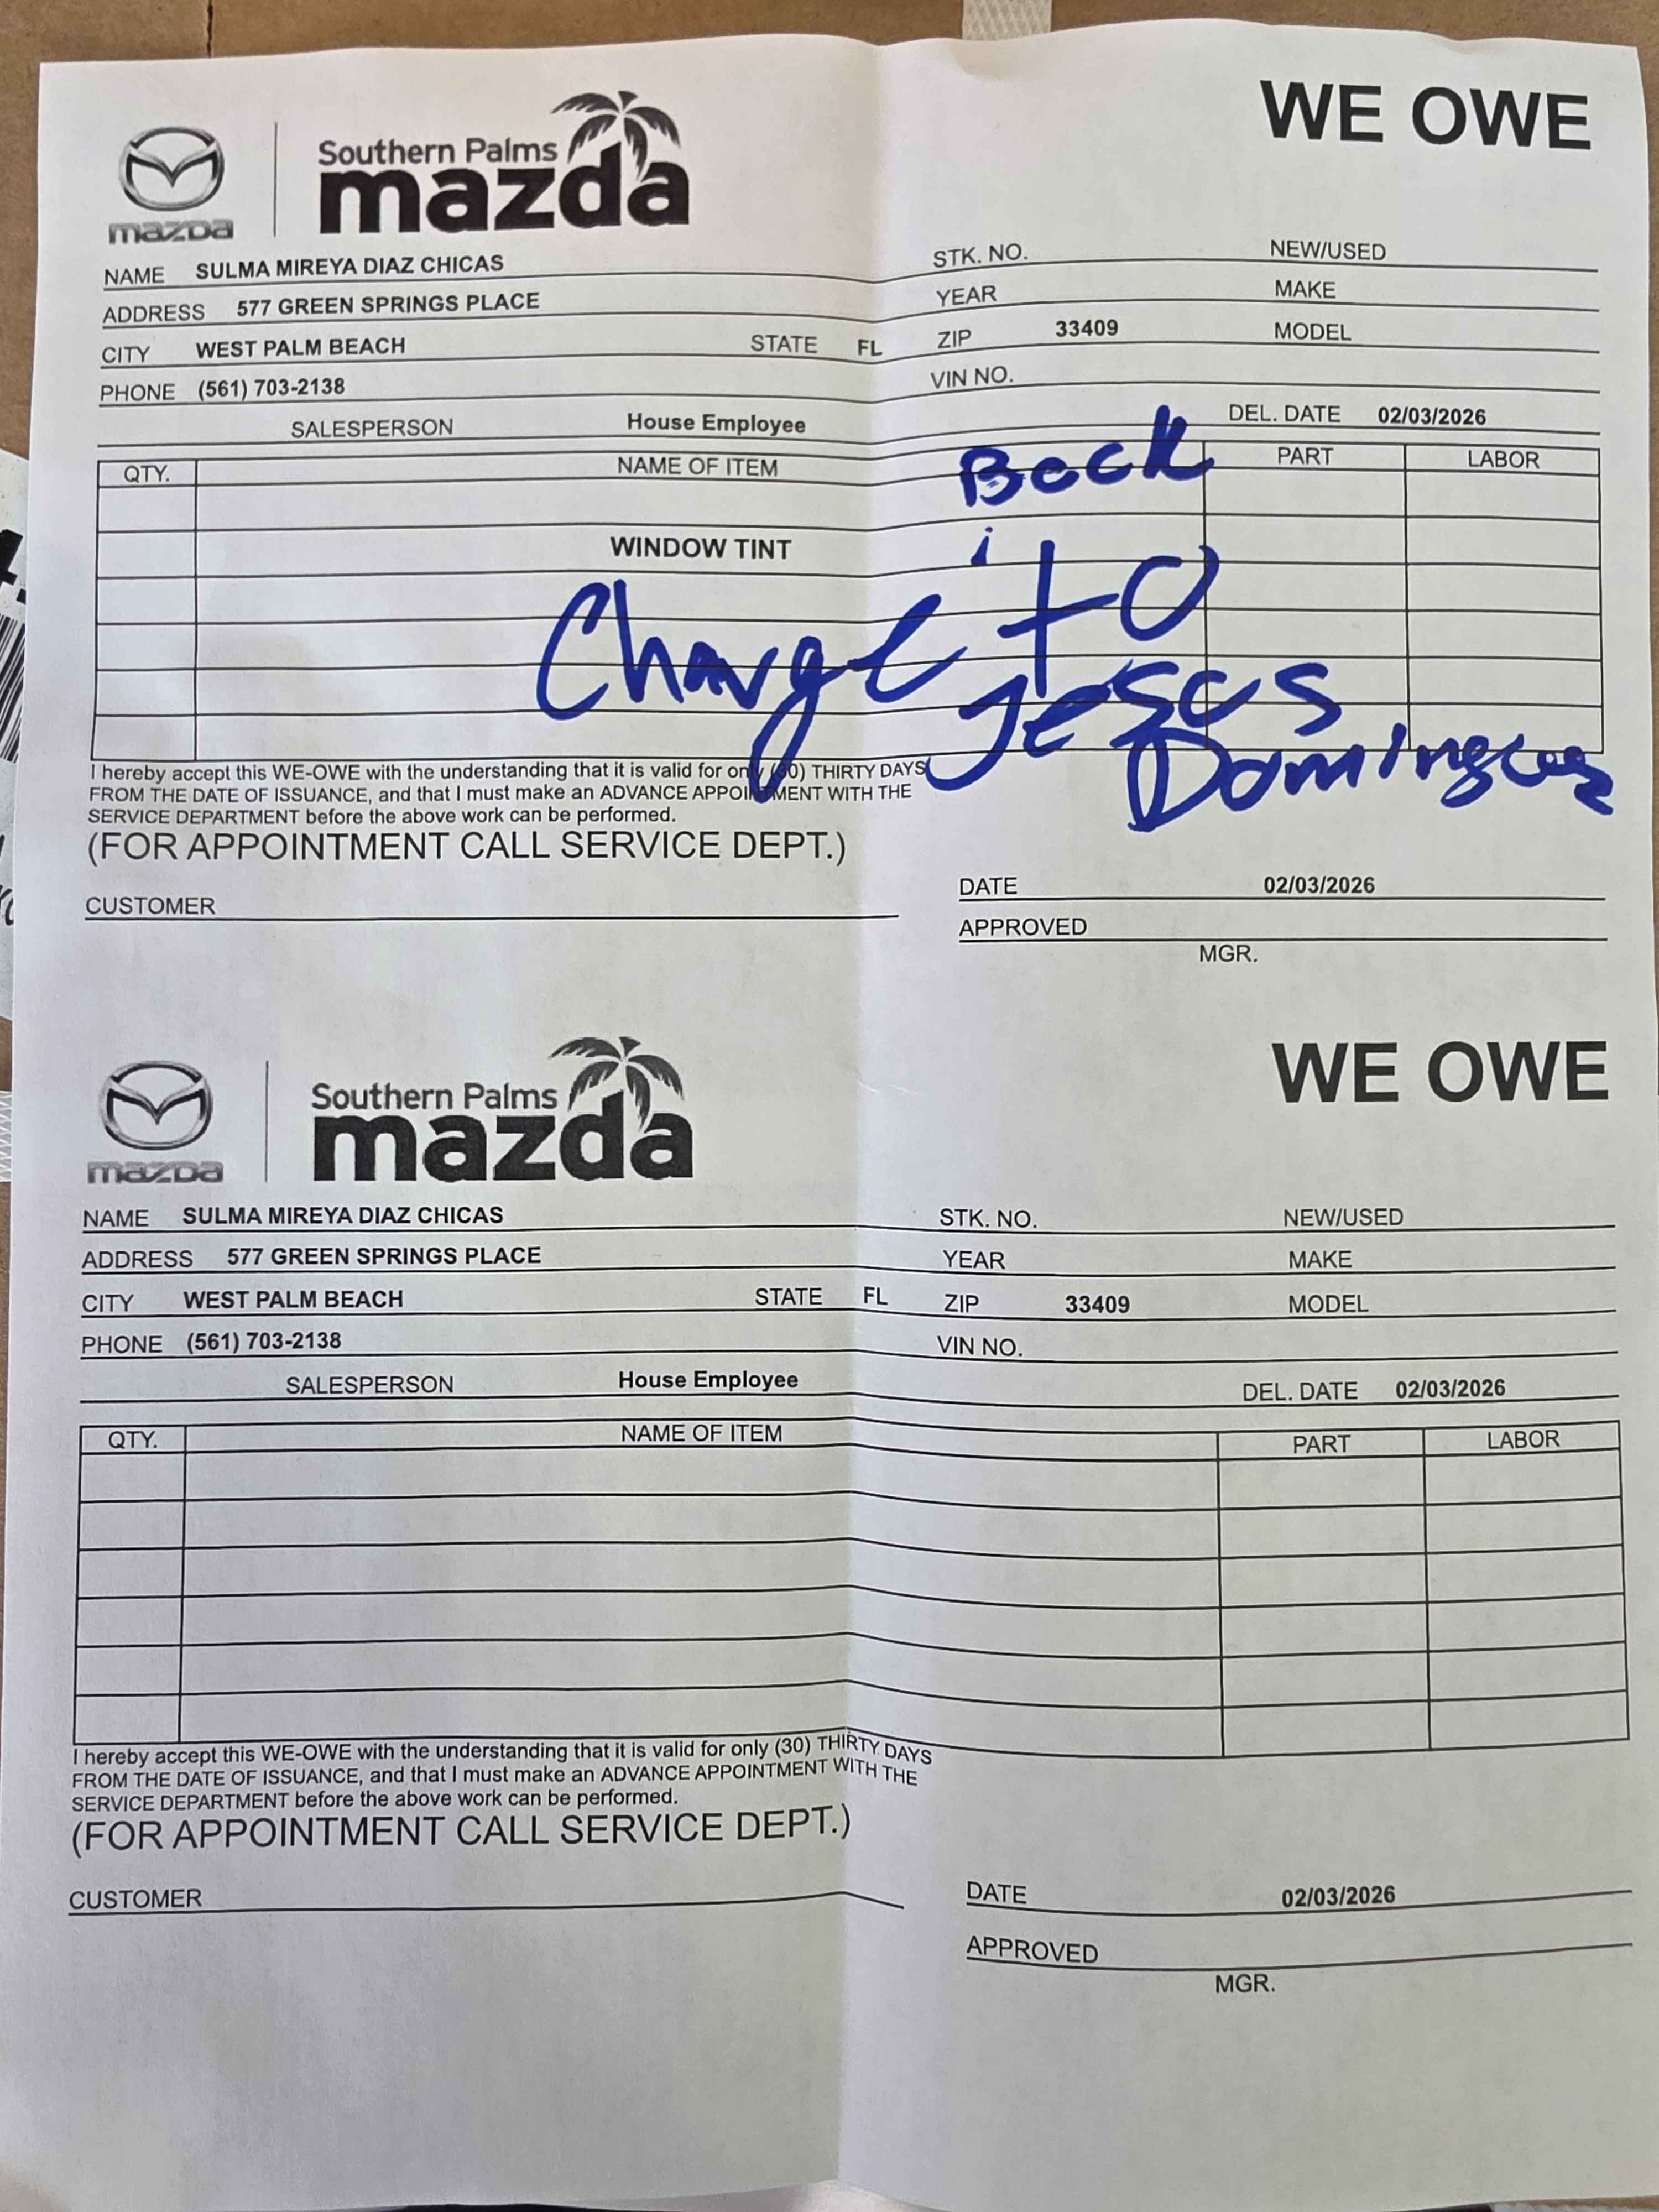 WE OWE
Southern Palms
mazda
mazda
NAME SULMA MIREYA DIAZ CHICAS STK. NO. NEW/USED
ADDRESS 577 GREEN SPRINGS PLACE YEAR MAKE
CITY WEST PALM BEACH STATE FL ZIP 33409 MODEL
PHONE (561) 703-2138 VIN NO.
SALESPERSON House Employee DEL. DATE 02/03/2026
QTY. NAME OF ITEM PART LABOR
Back
WINDOW TINT
Charge to
Jesus
Dominguez
I hereby accept this WE-OWE with the understanding that it is valid for only (30) THIRTY DAYS
FROM THE DATE OF ISSUANCE, and that I must make an ADVANCE APPOINTMENT WITH THE
SERVICE DEPARTMENT before the above work can be performed.
(FOR APPOINTMENT CALL SERVICE DEPT.)
DATE 02/03/2026
CUSTOMER
APPROVED
MGR.
WE OWE
Southern Palms
mazda
mazda
NAME SULMA MIREYA DIAZ CHICAS STK. NO. NEW/USED
ADDRESS 577 GREEN SPRINGS PLACE YEAR MAKE
CITY WEST PALM BEACH STATE FL ZIP 33409 MODEL
PHONE (561) 703-2138 VIN NO.
SALESPERSON House Employee DEL. DATE 02/03/2026
QTY. NAME OF ITEM PART LABOR
I hereby accept this WE-OWE with the understanding that it is valid for only (30) THIRTY DAYS
FROM THE DATE OF ISSUANCE, and that I must make an ADVANCE APPOINTMENT WITH THE
SERVICE DEPARTMENT before the above work can be performed.
(FOR APPOINTMENT CALL SERVICE DEPT.)
CUSTOMER DATE 02/03/2026
APPROVED
MGR.